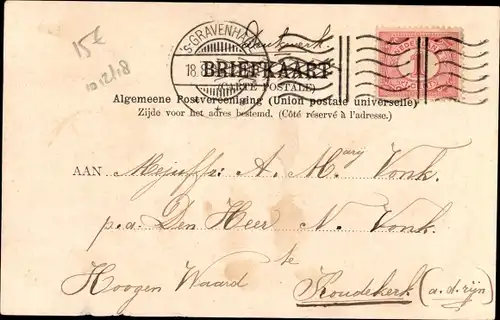 15€
10/12/18
Drukwerk.
'S-GRAVENHAGE
18.
NEDERLAND
1
BRIEFKAART
(CARTE POSTALE)
Algemeene Postvereeniging (Union postale universelle)
Zijde voor het adres bestemd. (Côté réservé à l'adresse.)
AAN Mejuffr: A. Mary Vonk.
p.a. Den Heer N. Vonk.
te
Hoogen Waard Koudekerk (a.d. rijn)